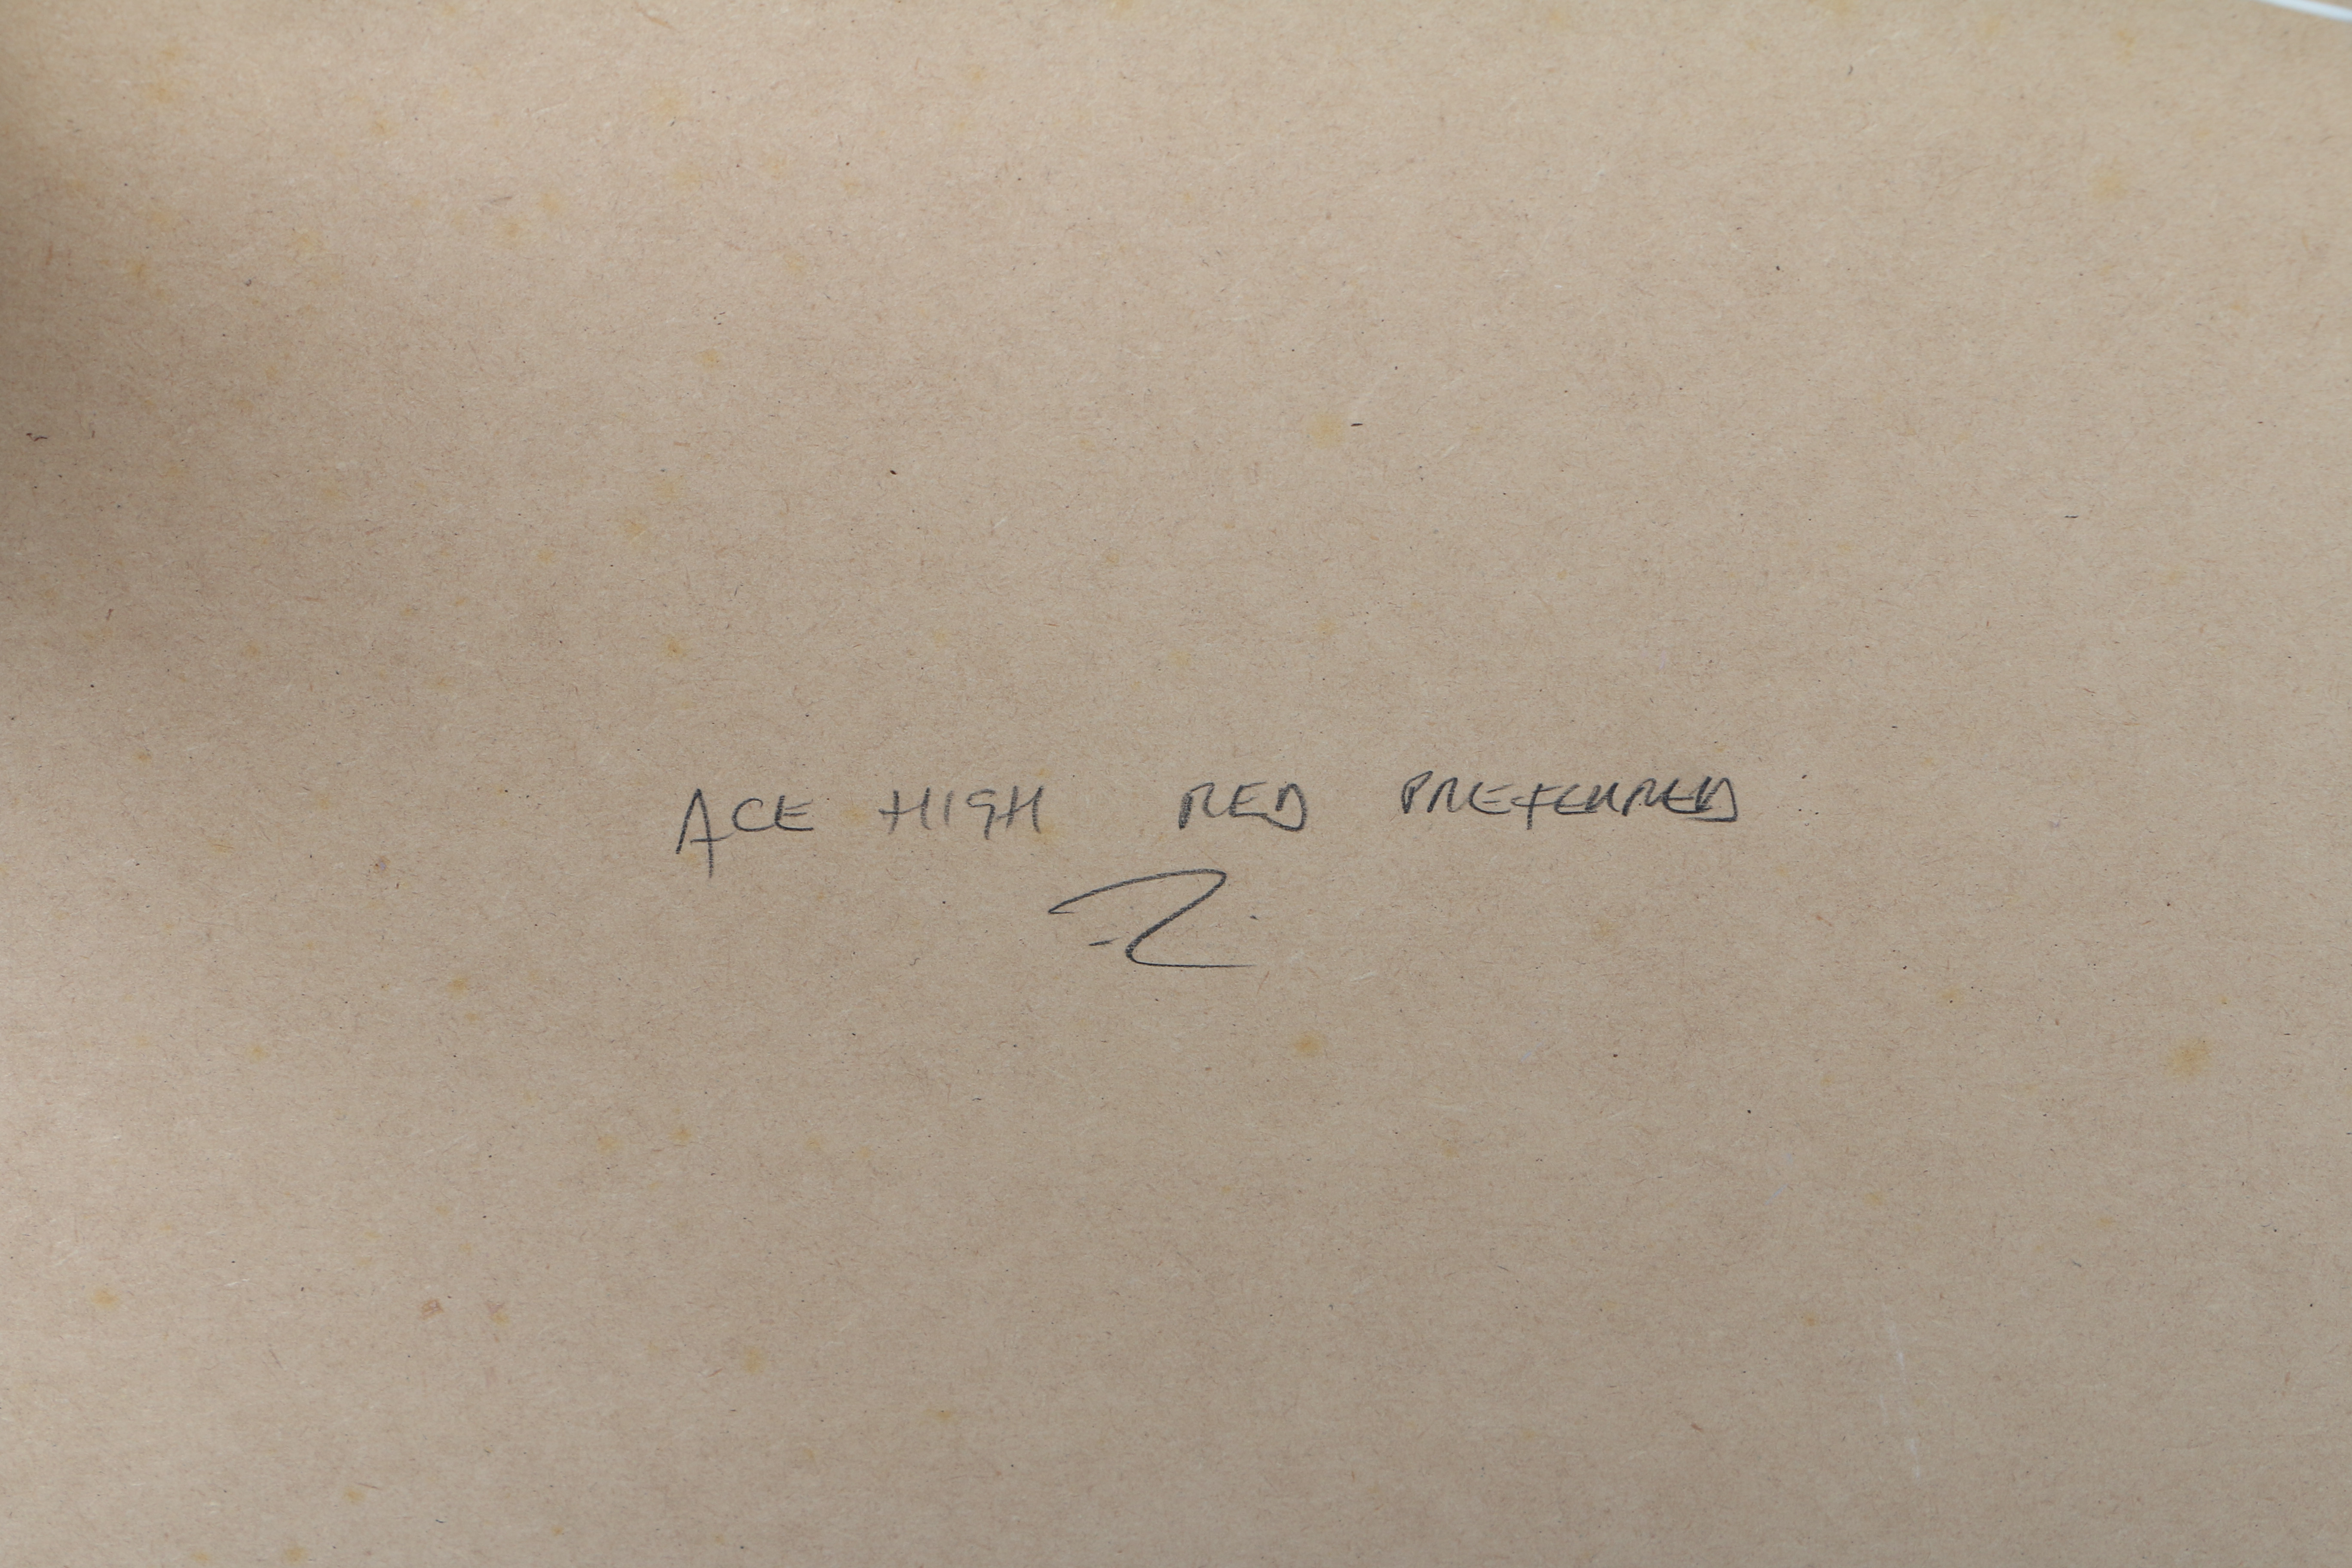 ACE HIGH RED PREFERRED